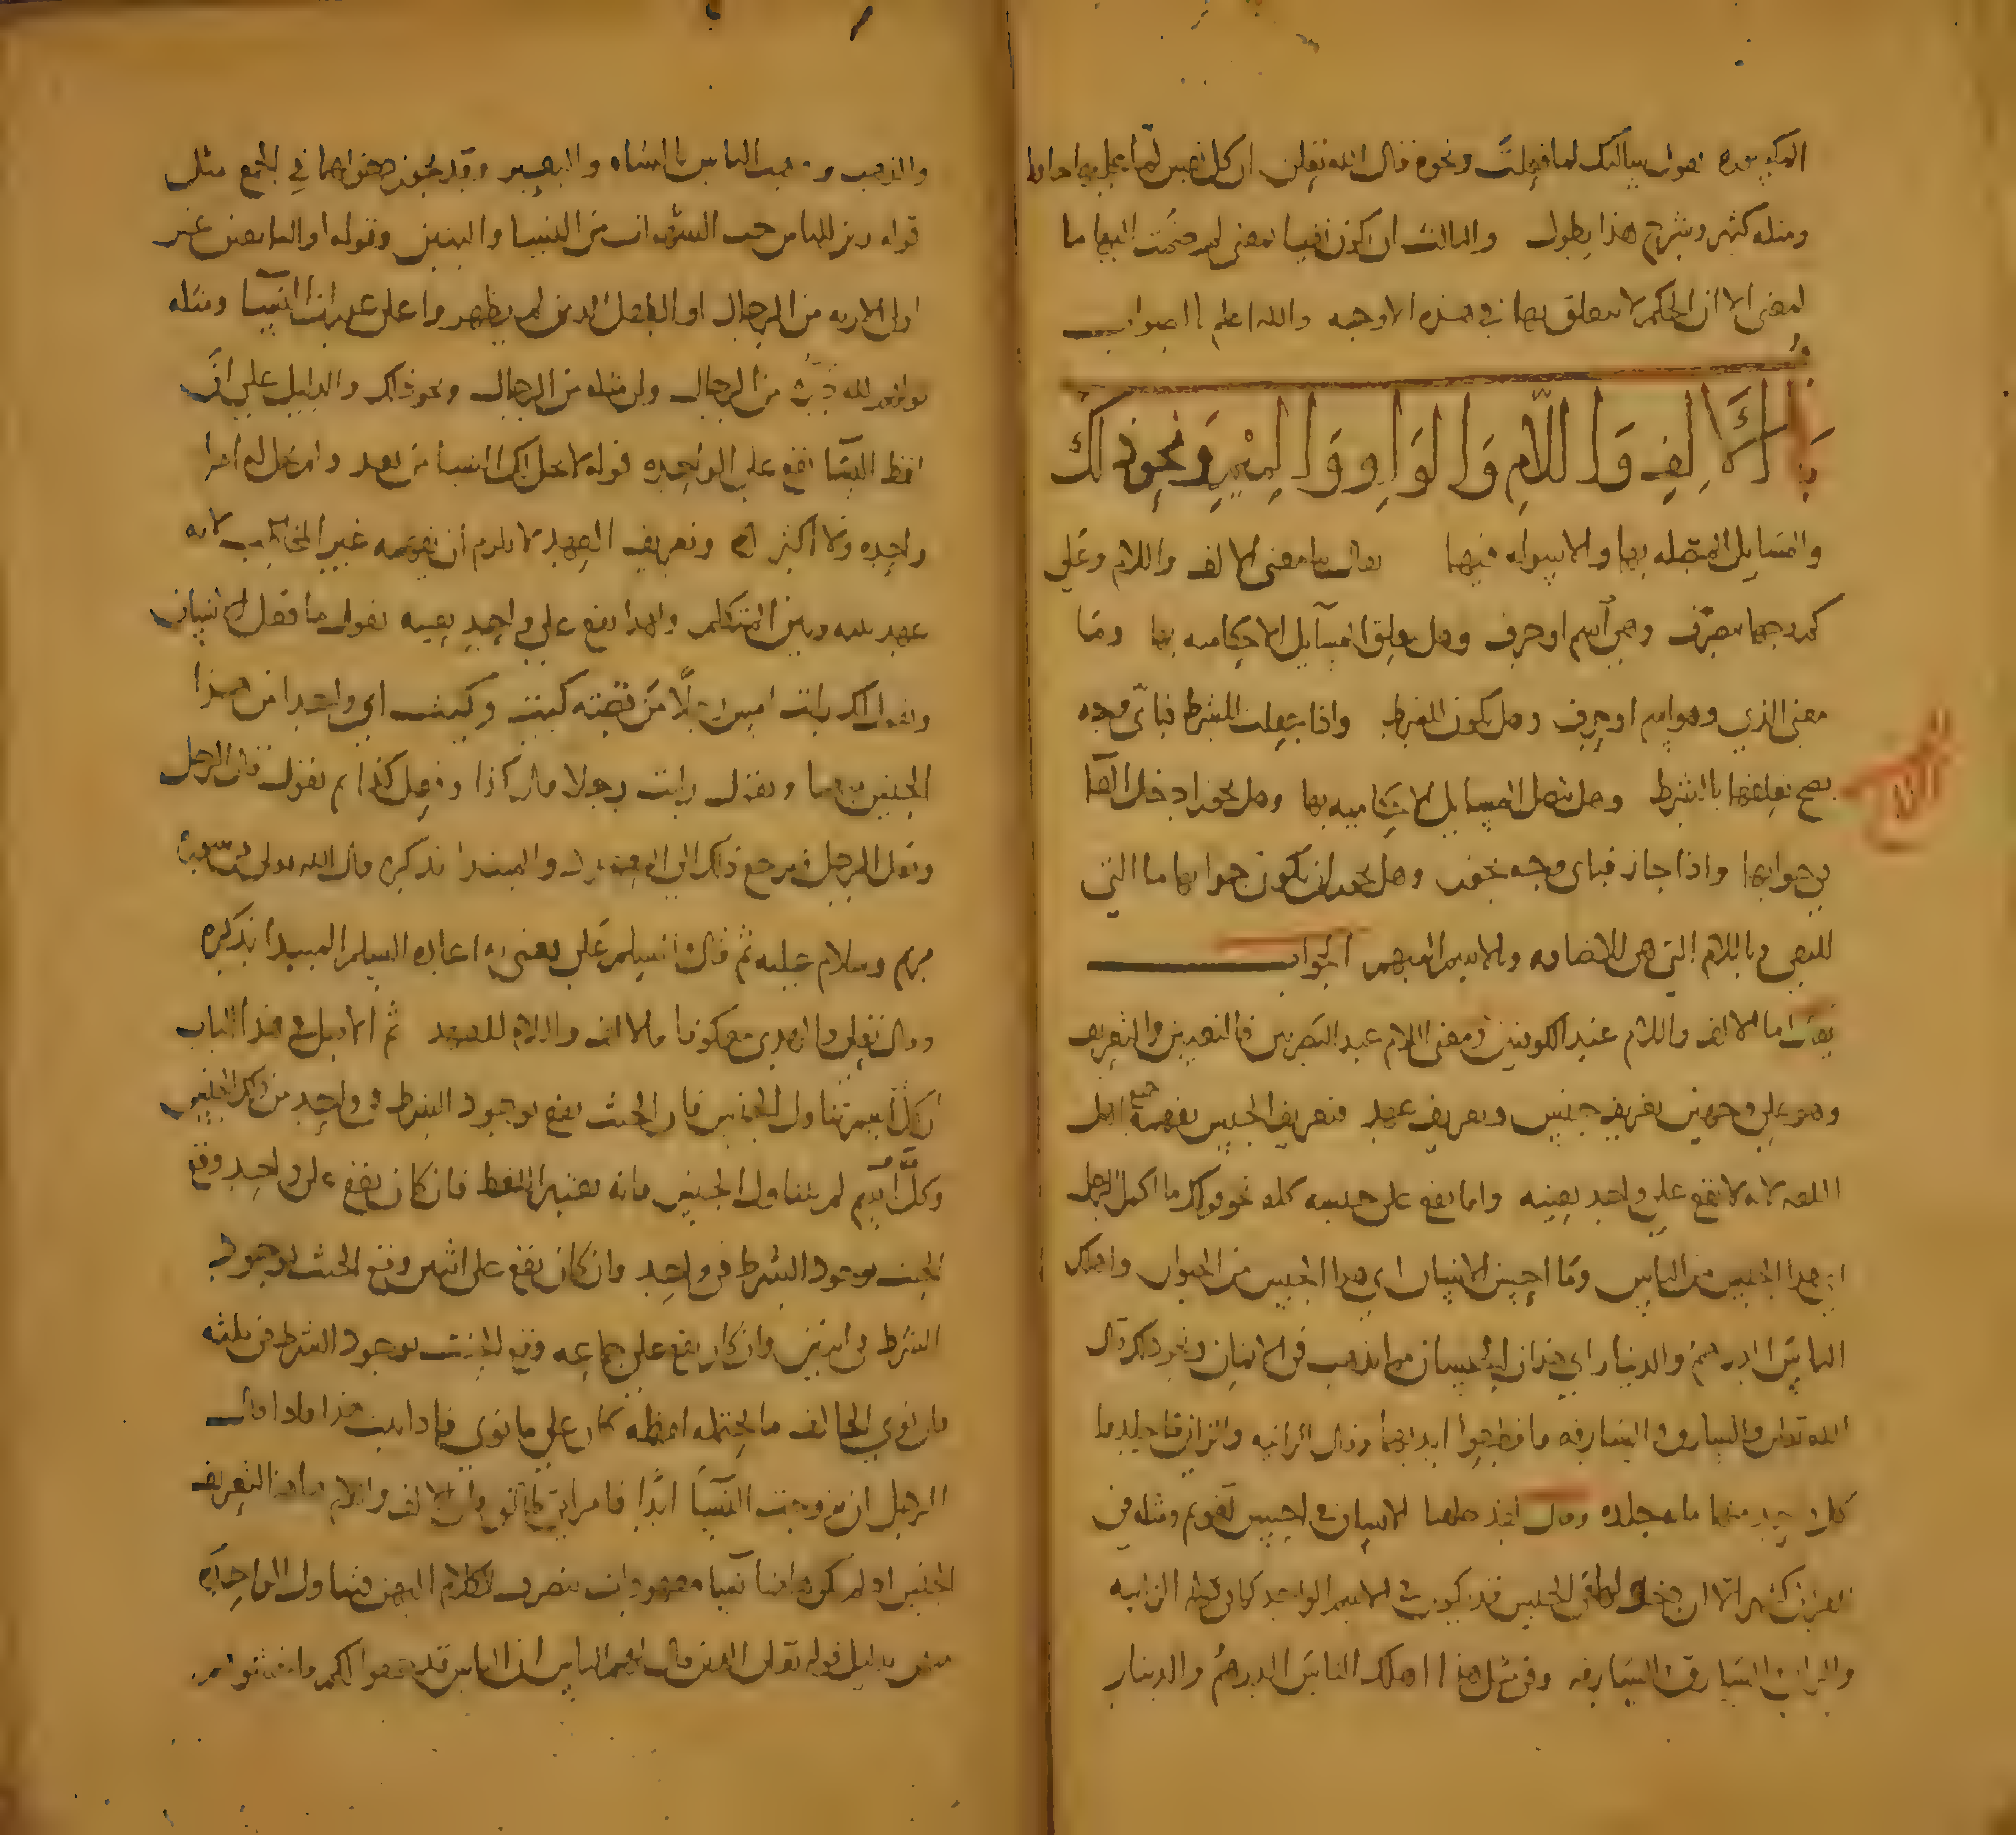 ونحوه قال الله تعلى ان كل نفس لما عليها حافظ
ومثله كثير وشرح هذا يطول والثالث ان تكون نفيا بمعنى لم ضمت اليها ما
لمعنى الا ان الحكم لا يتعلق بها في هذه الاوجه والله اعلم بالصواب
باب الالف واللام والواو والميم ونحو ذلك
والمسايل المتصله بها والاسوله فيها يقال ما معنى الالف واللام وعلى
كم وجها تتصرف وهي اسم او حرف وهل تعلق المسايل الاحكاميه بها وما
معنى الذي وهو اسم او حرف وهل تكون للشرط واذا جعلت للشرط فباي وجه
يصح تعلقها بالشرط وهل تتصل المسايل الاحكاميه بها وهل يجوز ادخال الفا
في جوابها واذا جاز فباي وجه يجوز وهل يجوز ان يكون جوابها ما التي
للنفي وباللام التي هي للاضافه وبالاسم المبهم الجواب
يقال اما الالف واللام عند الكوفيين ومعنى اللام عند البصريين فالتعيين والتعريف
وهو على وجهين تعريف جنس وتعريف عهد فتعريف الجنس يفهمه جميع اهل
اللغه لانه لا يقع على واحد بعينه وانما يقع على جنسه كله نحو قولك ما اكمل الرجل
اي هذا الجنس من الناس وما احسن الانسان اي هذا الجنس من الحيوان واهلك
الناس الدرهم والدينار اي هذان الجنسان هما الذهب في الاثمان ونحو ذلك قال
الله تعلى والسارق والسارقه فاقطعوا ايديهما وقال الزانيه والزاني فاجلدوا
كل واحد منهما مايه جلده وقال لقد خلقنا الانسان في احسن تقويم ومثله في
القران كثير الا ان لفظ الجنس قد يكون في الاسم الواحد كما في قوله الزانيه
والزاني والسارق والسارقه وفي مثل هذا اهلك الناس الدرهم والدينار
والذهب الناس الشاه والبعير وقد يجوز دخولهما في الجمع مثل
قوله زين للناس حب الشهوات من النسا والبنين وقوله او التابعين غير
اولي الاربه من الرجال او الطفل الذين لم يظهروا على عورات النسا ومثله
من الرجال ولي مثله من الرجال ونحو ذلك والدليل على ان
لفظ النسا يقع على الواحده قوله لا يحل لك النسا من بعد ولم يحل له امراه
واحده ولا اكثر وتعريف العهد لا يلزم ان يفهمه غير المخاطب لانه
عهد بينه وبين المتكلم وهذا يقع على واحد بعينه تقول ما فعل الانسان
وتقول رايت امس رجلا من قصته كيت وكيت اي واحدا من هذا
الجنس وتقول رايت رجلا قال كذا وفعل كذا ثم تقول قال الرجل
وفعل الرجل فيرجع ذلك الى الاول والمبتدا بذكره قال الله تعلى في سوره
مريم وسلام عليه ثم قال والسلم علي يعني به اعاده السلم المبتدا بذكره
وقال تعلى والهدي معكوفا فالالف واللام للعهد ثم الاصل في هذا الباب
ان كل اسم تناول الجنس فان الحنث يقع بوجود الشرط في واحد من ذلك الجنس
وكل اسم لم يتناول الجنس فانه يعتبر اللفظ فان كان يقع على واحد وقع
الحنث بوجود الشرط في واحد وان كان يقع على اثنين وقع الحنث بوجود
الشرط في اثنين وان كان يقع على جماعه وقع الحنث بوجود الشرط في ثلثه
فان نوى الحالف ما يحتمله لفظه كان على ما نوى فاذا ثبت هذا فاذا قال
الرجل ان تزوجت النسا ابدا فامراتي طالق فان الالف واللام هاهنا لتعريف
الجنس اذ لم يكن هاهنا نسا معهودات ينصرف الكلام اليهن فتناول الواحده
منهن بدليل قوله تعلى الذين قال لهم الناس ان الناس قد جمعوا لكم فاخشوهم